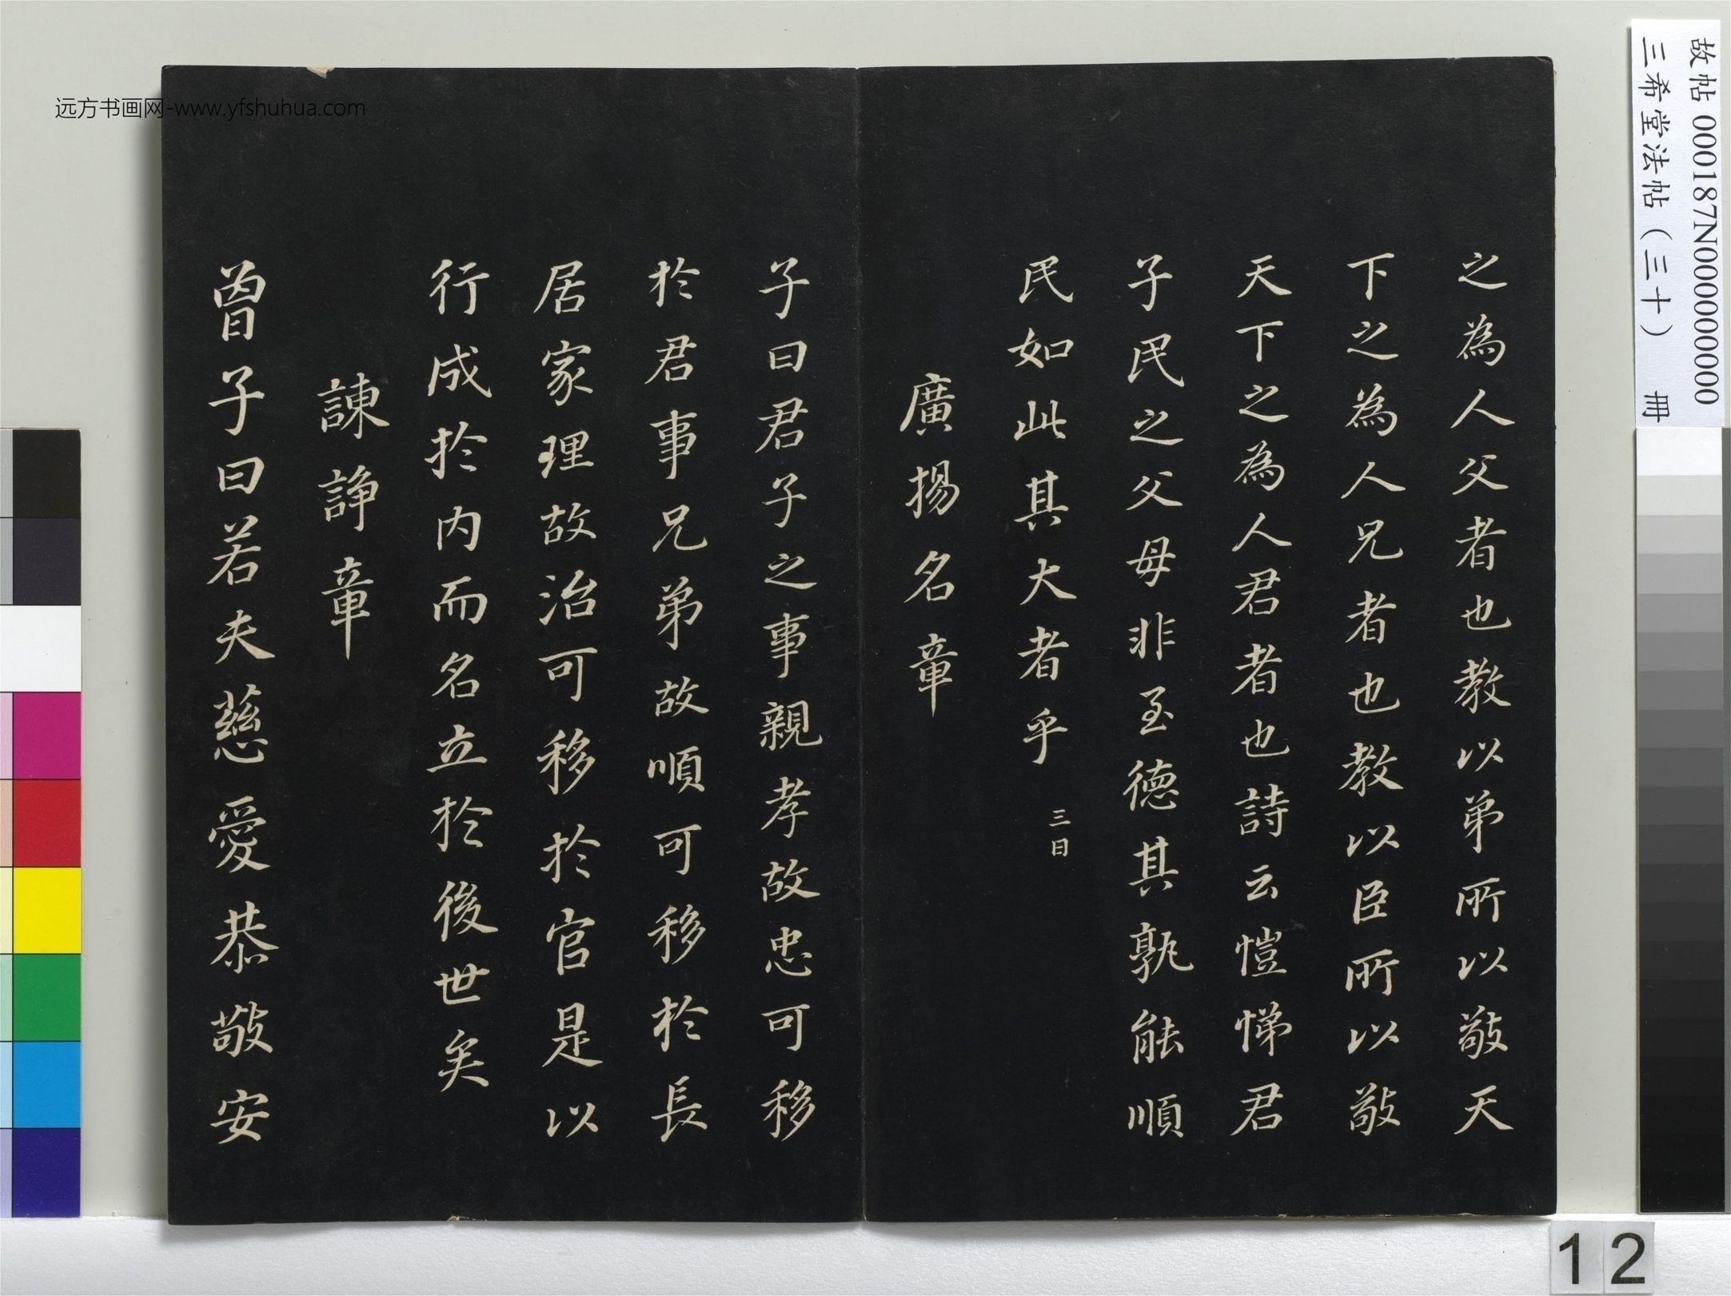 之為人父者也教以弟所以敬天
下之為人兄者也教以臣所以敬
天下之為人君者也詩云愷悌君
子民之父母非至德其孰能順
民如此其大者乎 三日
廣揚名章
子曰君子之事親孝故忠可移
於君事兄弟故順可移於長
居家理故治可移於官是以
行成於内而名立於後世矣
諫諍章
曾子曰若夫慈愛恭敬安
故帖 000187N000000000
三希堂法帖(三十) 冊
远方书画网-www.yfshuhua.com
12